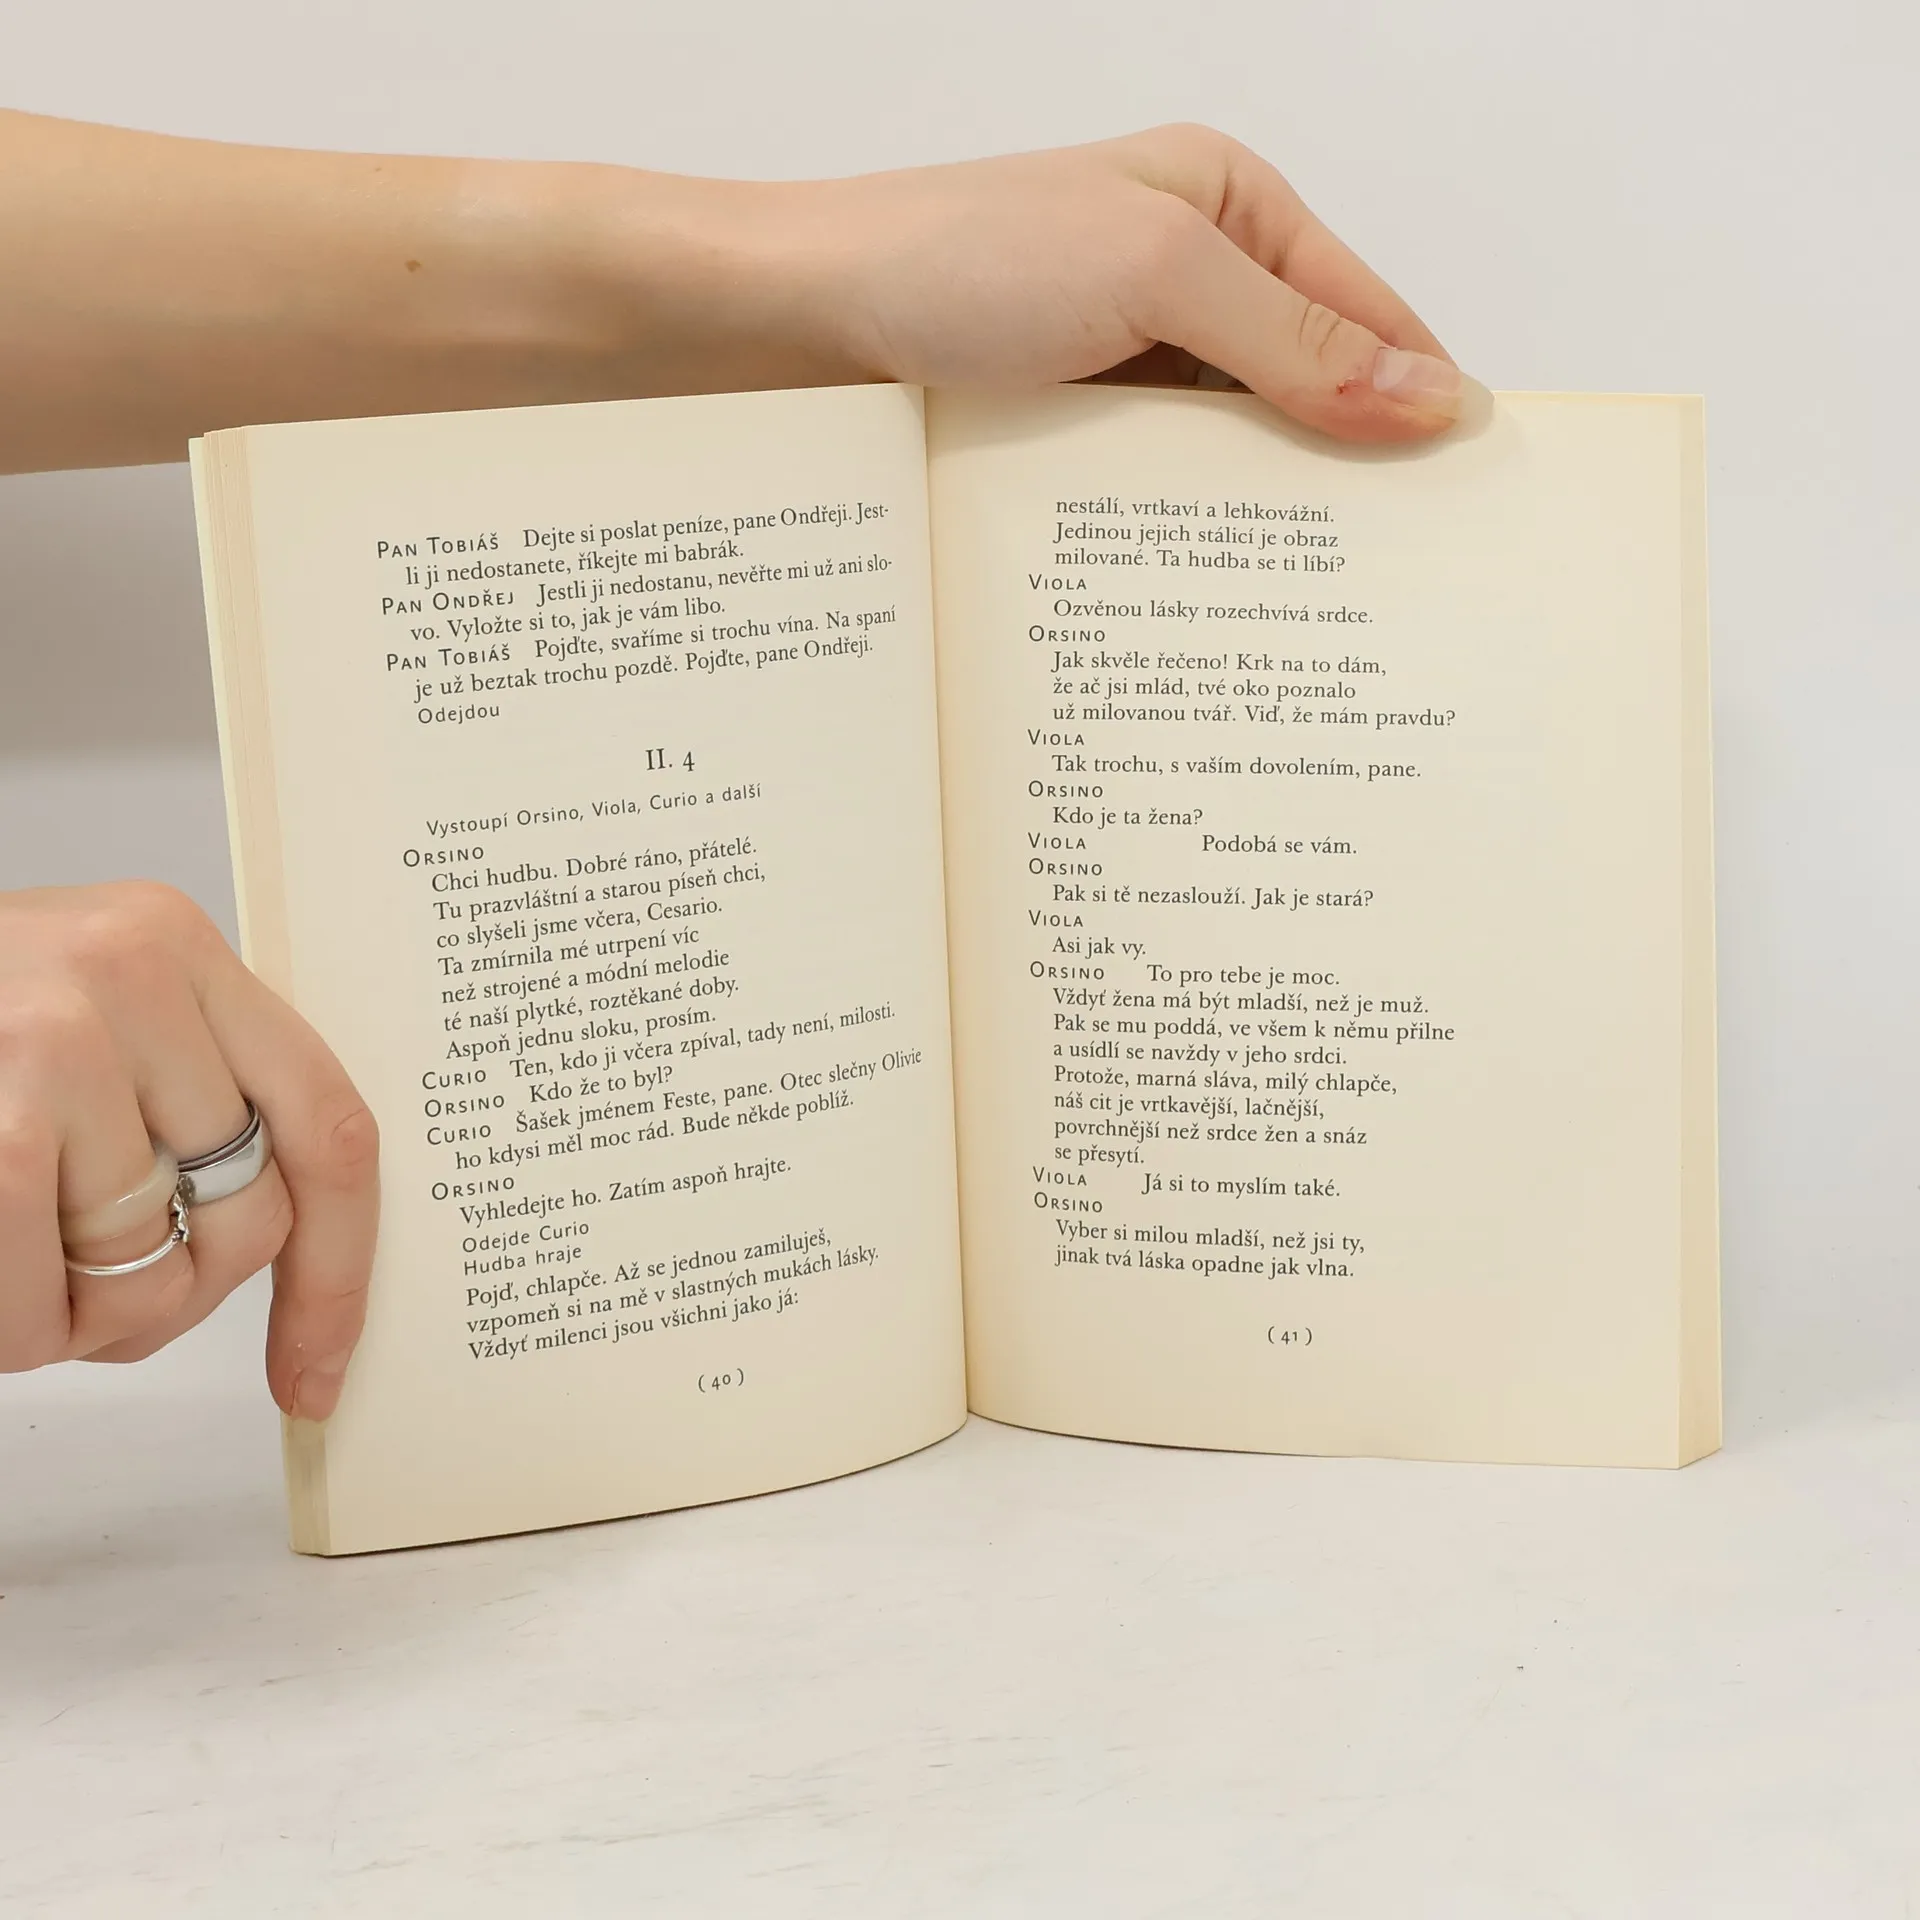 PAN TOBIÁŠ Dejte si poslat peníze, pane Ondřeji. Jest-
li ji nedostanete, říkejte mi babrák.
PAN ONDŘEJ Jestli ji nedostanu, nevěřte mi už ani slo-
vo. Vyložte si to, jak je vám libo.
PAN TOBIÁŠ Pojďte, svaříme si trochu vína. Na spaní
je už beztak trochu pozdě. Pojďte, pane Ondřeji.
Odejdou
II. 4
Vystoupí Orsino, Viola, Curio a další
ORSINO
Chci hudbu. Dobré ráno, přátelé.
Tu prazvláštní a starou píseň chci,
co slyšeli jsme včera, Cesario.
Ta zmírnila mé utrpení víc
než strojené a módní melodie
té naší plytké, roztěkané doby.
Aspoň jednu sloku, prosím.
CURIO Ten, kdo ji včera zpíval, tady není, milosti.
ORSINO Kdo že to byl?
CURIO Šašek jménem Feste, pane. Otec slečny Olivie
ho kdysi měl moc rád. Bude někde poblíž.
ORSINO
Vyhledejte ho. Zatím aspoň hrajte.
Odejde Curio
Hudba hraje
Pojď, chlapče. Až se jednou zamiluješ,
vzpomeň si na mě v slastných mukách lásky.
Vždyť milenci jsou všichni jako já:
( 40 )
nestálí, vrtkaví a lehkovážní.
Jedinou jejich stálicí je obraz
milované. Ta hudba se ti líbí?
VIOLA
Ozvěnou lásky rozechvívá srdce.
ORSINO
Jak skvěle řečeno! Krk na to dám,
že ač jsi mlád, tvé oko poznalo
už milovanou tvář. Viď, že mám pravdu?
VIOLA
Tak trochu, s vaším dovolením, pane.
ORSINO
Kdo je ta žena?
VIOLA Podobá se vám.
ORSINO
Pak si tě nezaslouží. Jak je stará?
VIOLA
Asi jak vy.
ORSINO To pro tebe je moc.
Vždyť žena má být mladší, než je muž.
Pak se mu poddá, ve všem k němu přilne
a usídlí se navždy v jeho srdci.
Protože, marná sláva, milý chlapče,
náš cit je vrtkavější, lačnější,
povrchnější než srdce žen a snáz
se přesytí.
VIOLA Já si to myslím také.
ORSINO
Vyber si milou mladší, než jsi ty,
jinak tvá láska opadne jak vlna.
( 41 )